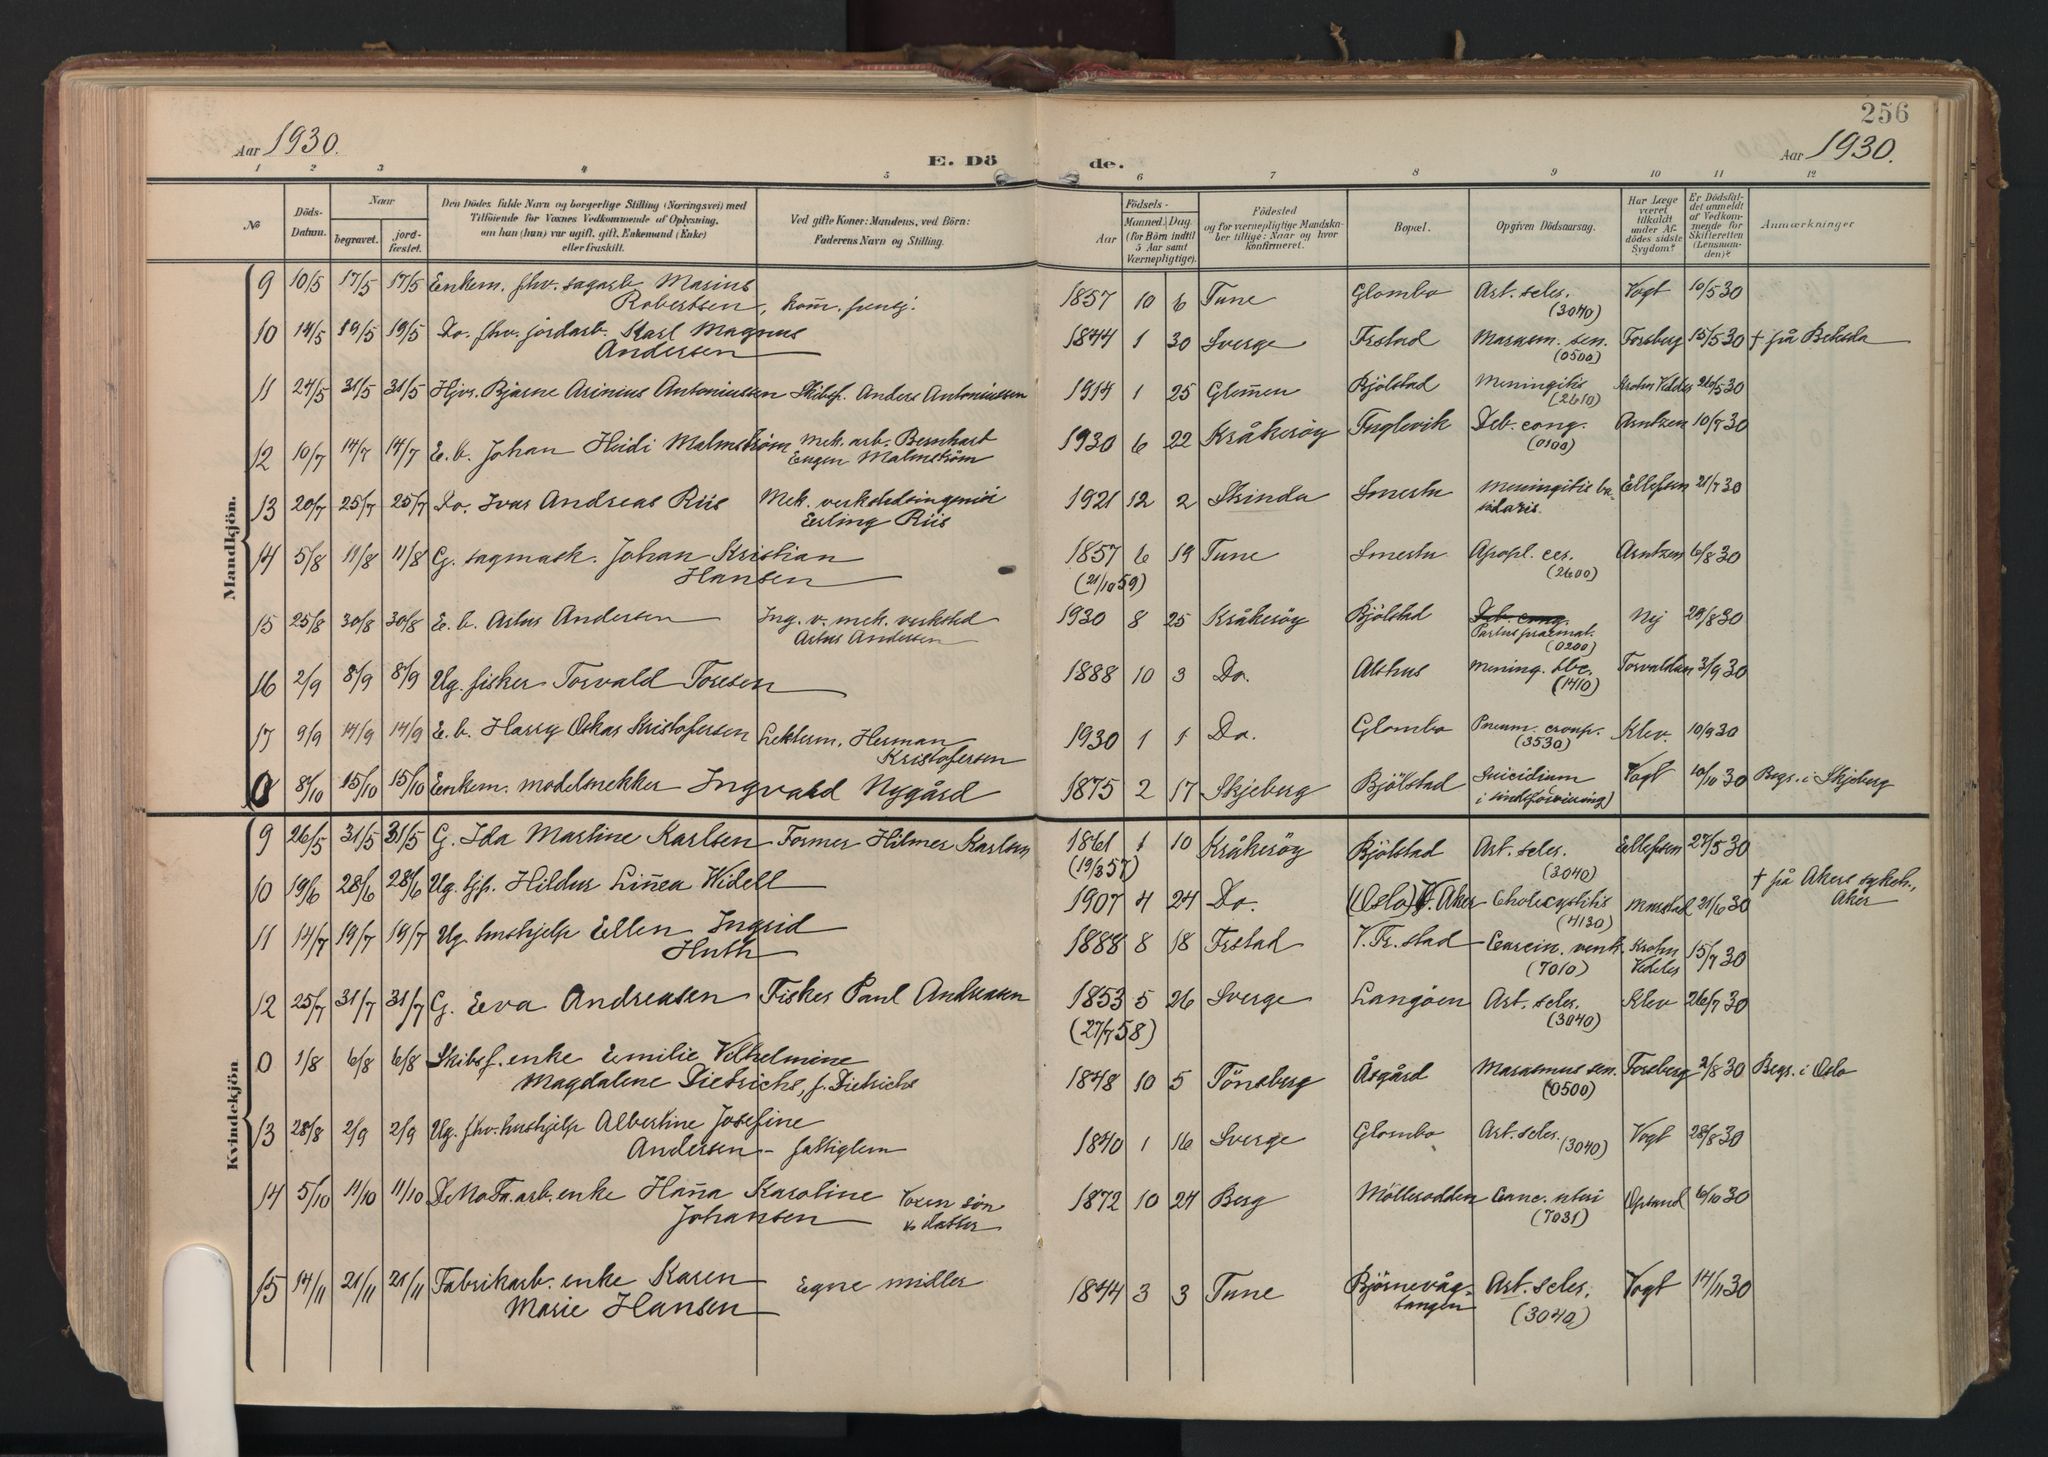 256
Aar 1930.
E. Dö
de.
Aar 1930.
1 2 3 4 5 6 7 8 9 10 11 12
№
Döds-
Datum.
Naar
begravet.
jord-
festet.
Den Dödes fulde Navn og borgerlige Stilling (Næringsvei) med
Tilföiende for Voxnes Vedkommende af Oplysning,
om han (hun) var ugift, gift, Enkemand (Enke)
eller fraskilt.
Ved gifte Koner: Mandens, ved Börn:
Faderens Navn og Stilling.
Födsels-
Aar
Maaned. Dag.
(for Börn indtil
5 Aar samt
Værnepligtige).
Födested
og for værnepligtige Mandska-
ber tillige: Naar og hvor
konfirmeret.
Bopæl.
Opgiven Dödsaarsag.
Har Læge
været
tilkaldt
under Af-
dödes sidste
Sygdom?
Er Dödsfal-
det anmeldt
af Vedkom-
mende for
Skifteretten
(Lensman-
den)?
Anmærkninger
Mandkjön.
9 10/5 17/5 17/5 Enkem. fhv. sagarb. Marius
Robertsen, kom. pensj. 1857 10 6 Tune Glombo Art. scler. (3040) Vogt 10/5 30
10 14/5 19/5 19/5 Do. fhv. jordarb. Karl Magnus
Andersen 1844 1 30 Sverge Frstad Marasm. sen. (0500) Forsberg 15/5 30 † på Betesda
11 24/5 31/5 31/5 Hjvs. Bjarne Arinius Antoniussen Skibsf. Anders Antoniussen 1914 1 25 Glemmen Bjölstad Meningitis (2610) Krohn Vedeler 26/5 30
12 10/7 14/7 14/7 E. b. Johan Heidi Malmström Mek. arb. Bernhart
Eugen Malmström 1930 6 22 Kråkeröy Fuglevik Deb. cong. (0100) Arntzen 10/7 30
13 20/7 25/7 25/7 Do. Ivar Andreas Riis Mek. verkstedsingeniör
Erling Riis 1921 12 2 Strinda Smertu Meningitis ba-
silaris. Ellefsen 21/7 30
14 5/8 11/8 11/8 G. sagmask. Johan Kristian
Hansen 1857 6 19 Tune Smertu Apopl. cer. (2600) Arntzen 6/8 30
(21/10 59)
15 25/8 30/8 30/8 E. b. Artur Andersen Ing. v. mek. verksted
Artur Andersen 1930 8 25 Kråkeröy Bjölstad Deb. cong.
Partus præmat. (0200) Nej 29/8 30
16 2/9 8/9 8/9 Ug. fisker Torvald Toresen 1888 10 3 Do. Alshus Mening. tbc. (1410) Torvaldsen 3/9 30
17 9/9 14/9 14/9 E. b. Harry Oskar Kristofersen Lekterm. Herman
Kristofersen 1930 1 1 Do. Glombo Pneum. croup. (3530) Klev. 10/9 30
0 8/10 15/10 15/10 Enkem. modelsnekker Ingvald Nygård 1875 2 17 Skjeberg Bjölstad Suicidium
i sindsforvirring) Vogt 10/10 30 Begr. i Skjeberg
Kvindekjön
9 26/5 31/5 31/5 G. Ida Martine Karlsen Former Hilmer Karlsen 1861 1 10 Kråkeröy Bjölstad Art. scler. (3040) Ellefsen 27/5 30
(19/3 57)
10 19/6 28/6 28/6 Ug. tjp. Hildur Linnea Widell 1907 4 24 Do. (Oslo) V. Aker Cholecystitis (4130) Marstad 21/6 30 † på Akers sykeh.,
Aker
11 14/7 19/7 19/7 Ug. hushjelp Ellen Ingrid
Huth 1888 8 18 Frstad V. Fr.stad Carcin. ventr. (7010) Krohn
Vedeler 15/7 30
12 25/7 31/7 31/7 G. Eva Andreasen Fisker Paul Andreasen 1853 5 26 Sverge Langöen Art. scler. (3040) Klev 26/7 30
(27/7 58)
0 1/8 6/8 6/8 Skibsf. enke Emilie Vilhelmine
Magdalene Dietrichs, f. Dietrichs 1848 10 5 Tönsberg Åsgård Marasmus sen. (0500) Forsberg 2/8 30 Begr. i Oslo
13 28/8 2/9 2/9 Ug. fhv. hushjelp Albertine Josefine
Andersen - fattiglem 1840 1 16 Sverge Glombo Art. scler. (3040) Vogt 28/8 30
14 5/10 11/10 11/10 DeNoFa. arb. enke Hanna Karoline
Johansen Voxen sön
& datter 1872 10 24 Berg Möllerodden Canc. uteri (7031) Opsand 6/10 30
15 14/11 21/11 21/11 Fabrikarb. enke Karen
Marie Hansen Egne midler 1844 3 3 Tune Björnevåg-
tangen Art. scler. (3040) Vogt 14/11 30